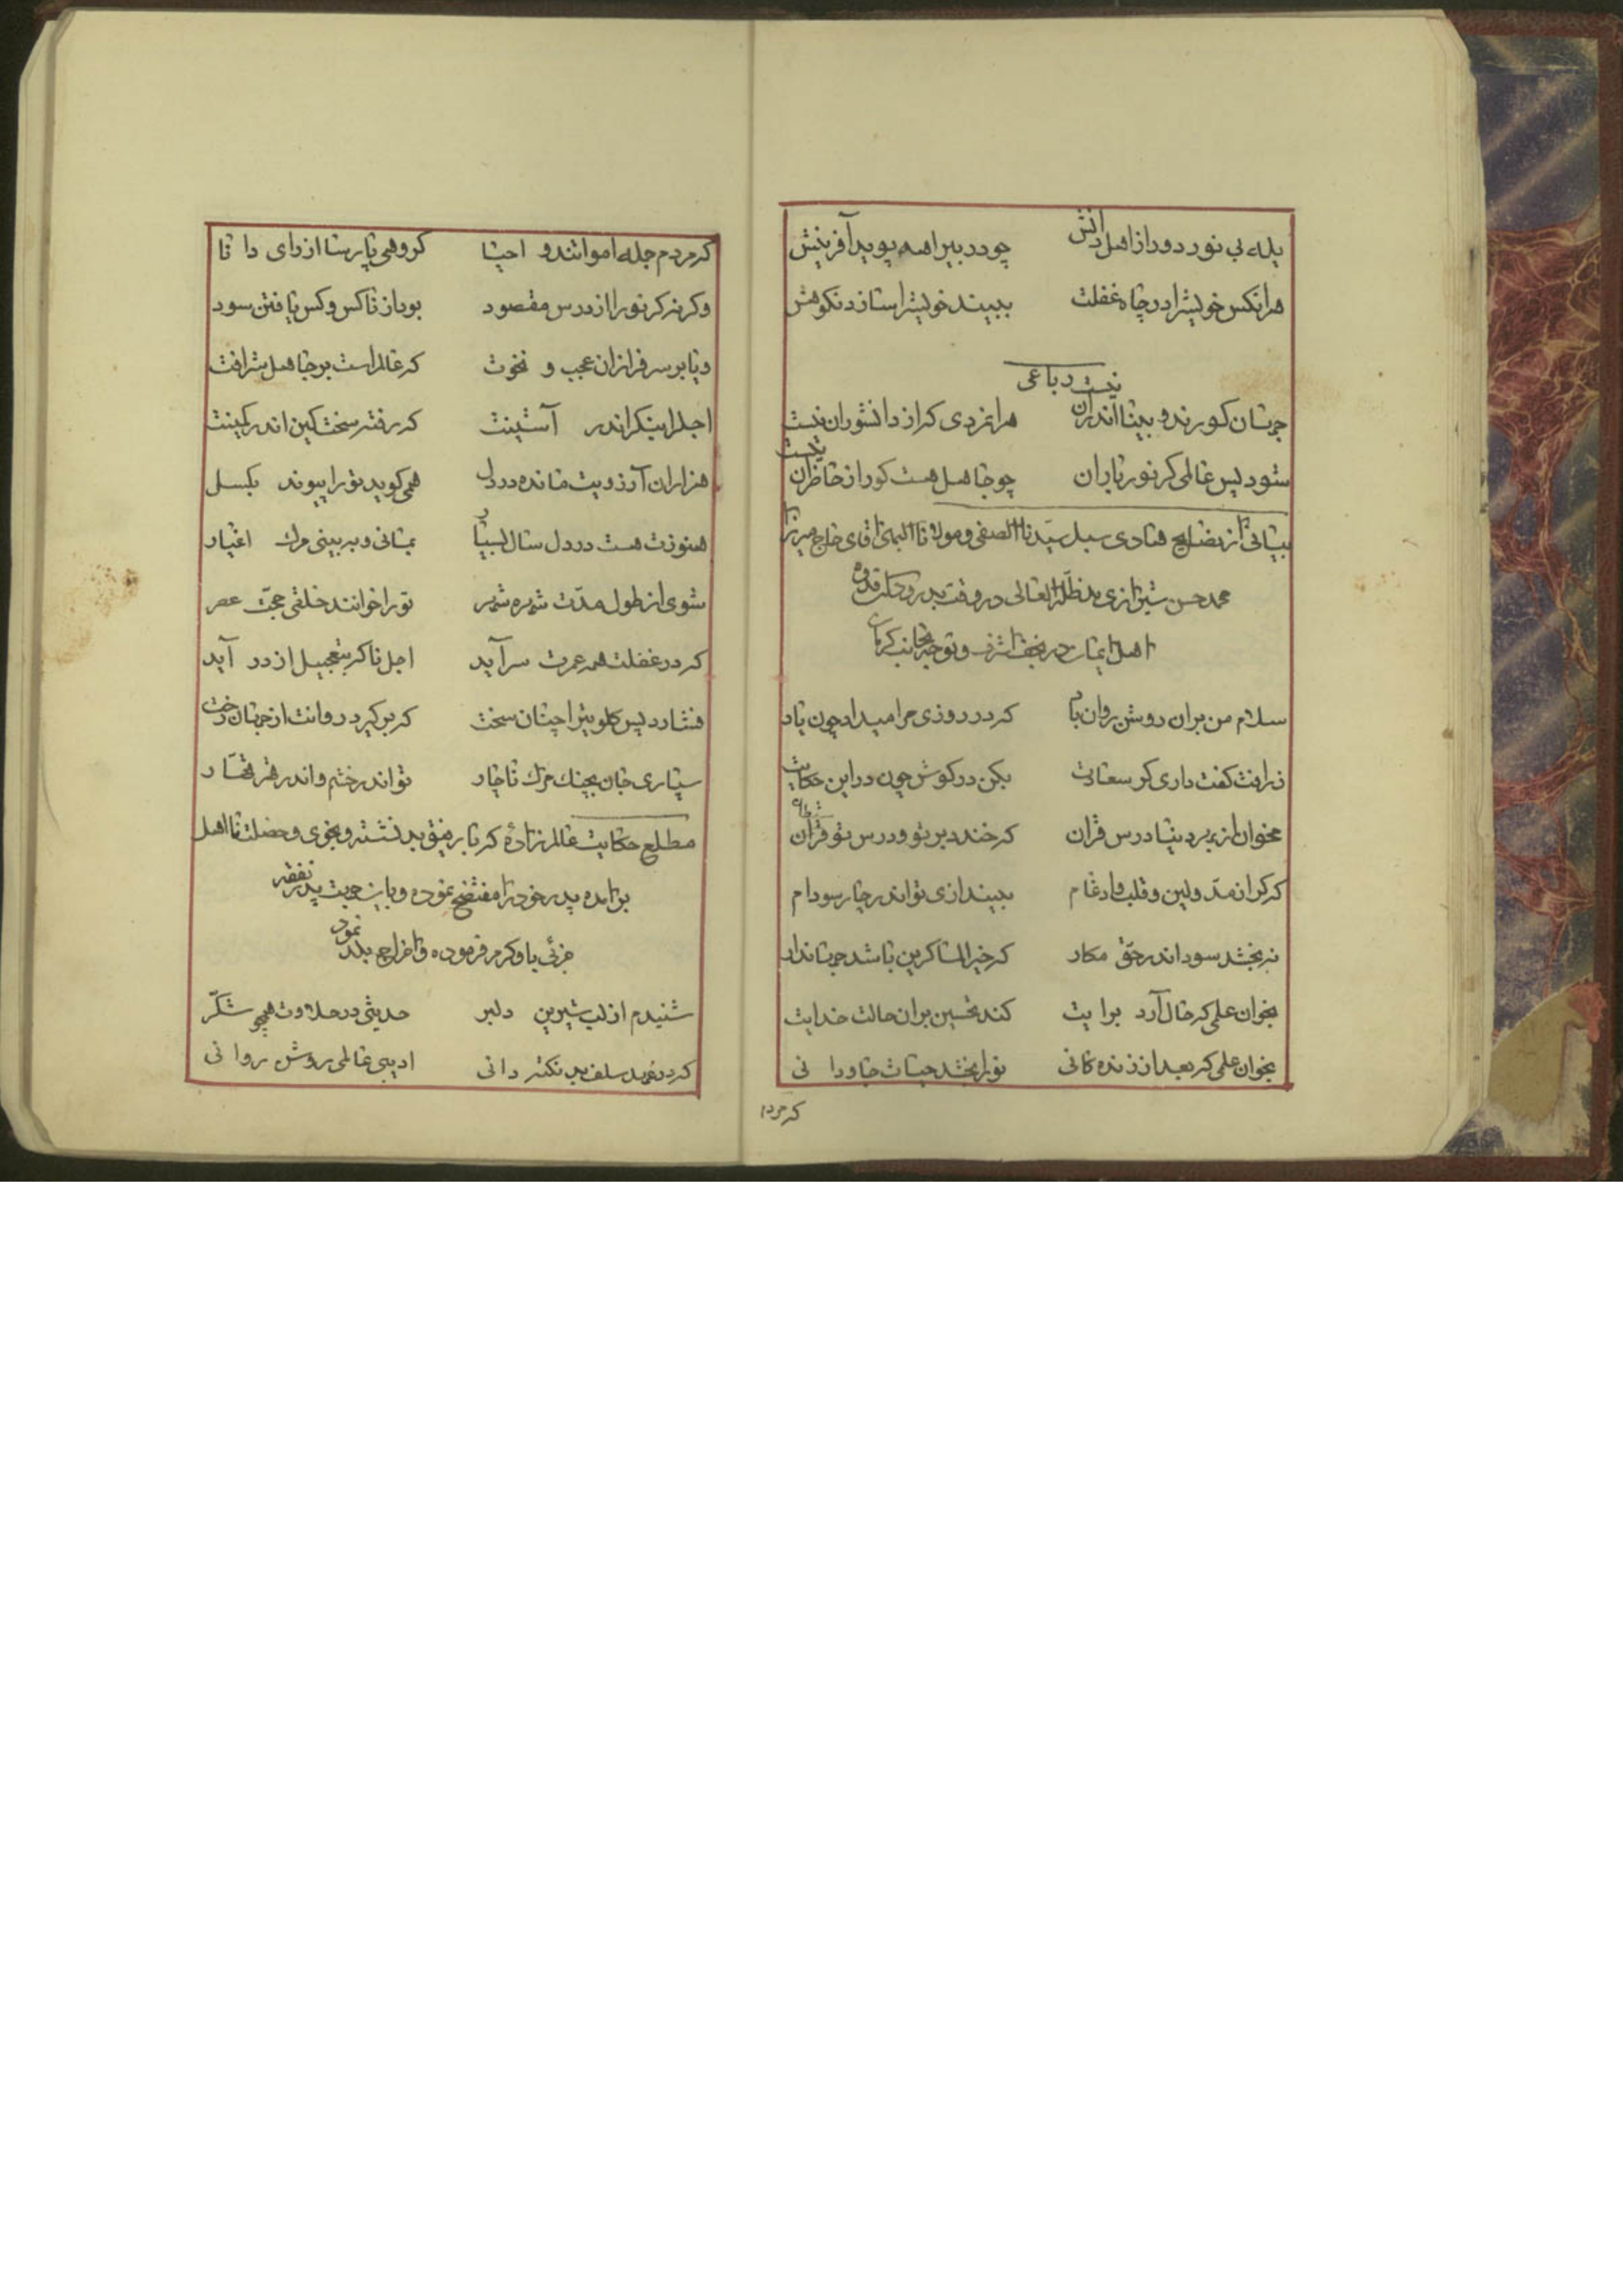 یله بی نور دور از اهل دانش چو در بیراهه پوید آفرینش
هر انکس خویش را در چاه غفلت ببیند خویش را سازد نکوهش
رباعی
جهان کورند و بینا اندران نیست هر انفردی که از دانشوران نیست
شود پس عالمی کر نور باران چو جاهل هست کور از حاضران نیست
بیانی از نصایح هادی سبل سیدنا الصفی و مولانا البهی اقای حاج میرزا
محمد حسن شیرازی مد ظله العالی در وقت بدرود حکت قدوه
اهل ایمان در نجف اشرف و توجه بجانب کرمان
سلام من بران روشن روان باد که در روزی مرا میداد چون یاد
ز رافت گفت داری کر سعادت بکن در کوش چون در این حکایت
مخوان از بهر دنیا درس قران که خندد بر تو و درس تو قران
که کر از مد و لین و قلب و ادغام ببیندازی تو اندر چار سو دام
نه بخشد سود اندر حق مکار که خیر الماکرین باشد جهاندار
بخوان علمی که حال آرد برایت کند تحسین بران حالت خدایت
بخوان علمی که بعد از زنده کانی تو را بخشد حیات جاودانی
که مردم
که مردم جمله امواتند و احیا کروهی پارسا از رای دانا
و کر نه کر تو را از درس مقصود بود از ناکس و کس یافتن سود
و یا بر سرفرازان عجب و نخوت که عالم راست بر جاهل شرافت
اجل را بنکر اندر آستینت که رفته سخت کین اندر کمینت
هزاران آرزویت مانده در دل همی کوید تو را پیوند بکسل
هنوزت هست در دل سال بسیار بمانی و ببینی مرک اغیار
شوی از طول مدت شهره شهر تو را خوانند خلقی حجت عصر
که در غفلت همه عمرت سرآید اجل ناکه بتعجیل از در آید
فشارد پس کلویت را چنان سخت که بر کیرد روانت از جهان رخت
سپاری جان بچنک مرک ناچار تو اندر خشم و اندر قهر قهار
مطلع حکایت عالم زادهٔ که با رفیق بد نشسته و بخوی و خصلت نا اهل
برامده پدر خود را مفتضح نموده و باین جهت پدر نفقه
جزئی باو کرم فرموده و اخراج بلد نمود
شنیدم از لب شیرین دلبر حدیثی در حلاوت همچو شکر
که در عهد سلف بد نکته دانی ادیبی عالمی روشن روانی